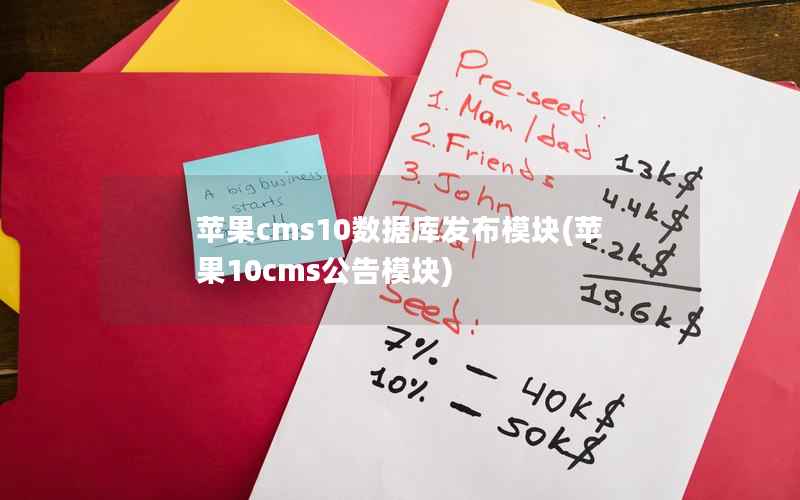 Pre-seed:
1. Mam/dad 13k$
2. Friends 4.4k$
3. John 2.2k$
19.6k$
Seed:
7% — 40k$
10% — 50k$
A big business
starts
苹果cms10数据库发布模块(苹
果10cms公告模块)